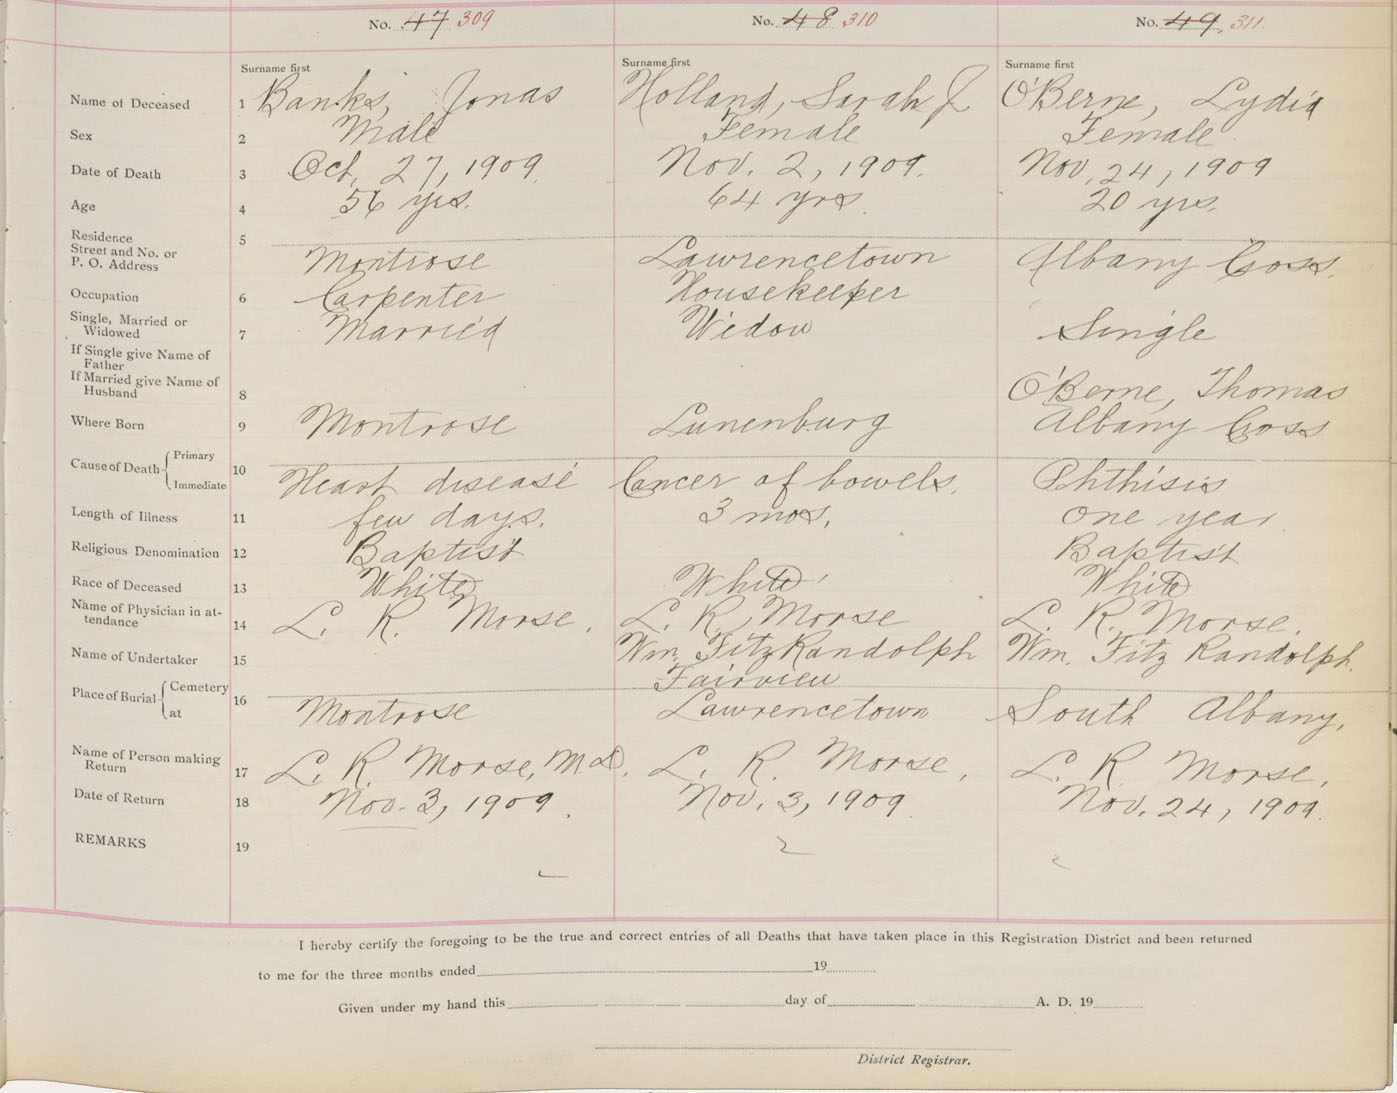 No. 47 309 No. 48 310 No. 49 311.
Surname first Surname first Surname first
Name of Deceased 1 Banks, Jonas Holland, Sarah J O'Berne, Lydia
Sex 2 Male Female Female
Date of Death 3 Oct. 27, 1909. Nov. 2, 1909. Nov. 24, 1909
Age 4 56 yrs. 64 yrs. 20 yrs.
Residence 5
Street and No. or
P. O. Address Montrose Lawrencetown Albany Cross.
Occupation 6 Carpenter Housekeeper
Single, Married or
Widowed 7 Married Widow Single
If Single give Name of
Father
If Married give Name of
Husband 8 O'Berne, Thomas
Where Born 9 Montrose Lunenburg Albany Cross
Cause of Death { Primary
Immediate 10 Heart disease Cancer of bowels. Phthisis
Length of Illness 11 few days. 3 mos. One year
Religious Denomination 12 Baptist Baptist
Race of Deceased 13 White White White
Name of Physician in at-
tendance 14 L. R. Morse. L. R. Morse L. R. Morse.
Name of Undertaker 15 Wm. FitzRandolph Wm. Fitz Randolph.
Place of Burial { Cemetery 16 Fairview
at Montrose Lawrencetown South Albany.
Name of Person making
Return 17 L. R. Morse, M.D. L. R. Morse, L. R. Morse,
Date of Return 18 Nov. 3, 1909. Nov. 3, 1909. Nov. 24, 1909.
REMARKS 19
I hereby certify the foregoing to be the true and correct entries of all Deaths that have taken place in this Registration District and been returned
to me for the three months ended 19
Given under my hand this day of A. D. 19
District Registrar.